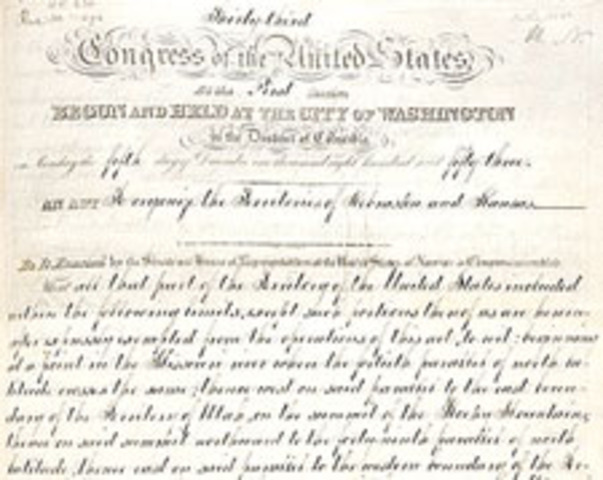 Thirty third
Congress of the United States
At the First Session
BEGUN AND HELD AT THE CITY OF WASHINGTON
in the District of Columbia
on Monday the fifth day of December one thousand eight hundred and fifty three.
AN ACT To organize the Territories of Nebraska and Kansas
Be it Enacted by the Senate and House of Representatives of the United States of America in Congress assembled
That all that part of the Territory of the United States included
within the following limits, except such portions thereof as are herein-
after expressly exempted from the operations of this act, to wit: beginning
at a point in the Missouri river where the fortieth parallel of north la-
titude crosses the same; thence west on said parallel to the east boun-
dary of the Territory of Utah, on the summit of the Rocky Mountains;
thence on said summit northward to the forty-ninth parallel of north
latitude; thence east on said parallel to the western boundary of the Te-